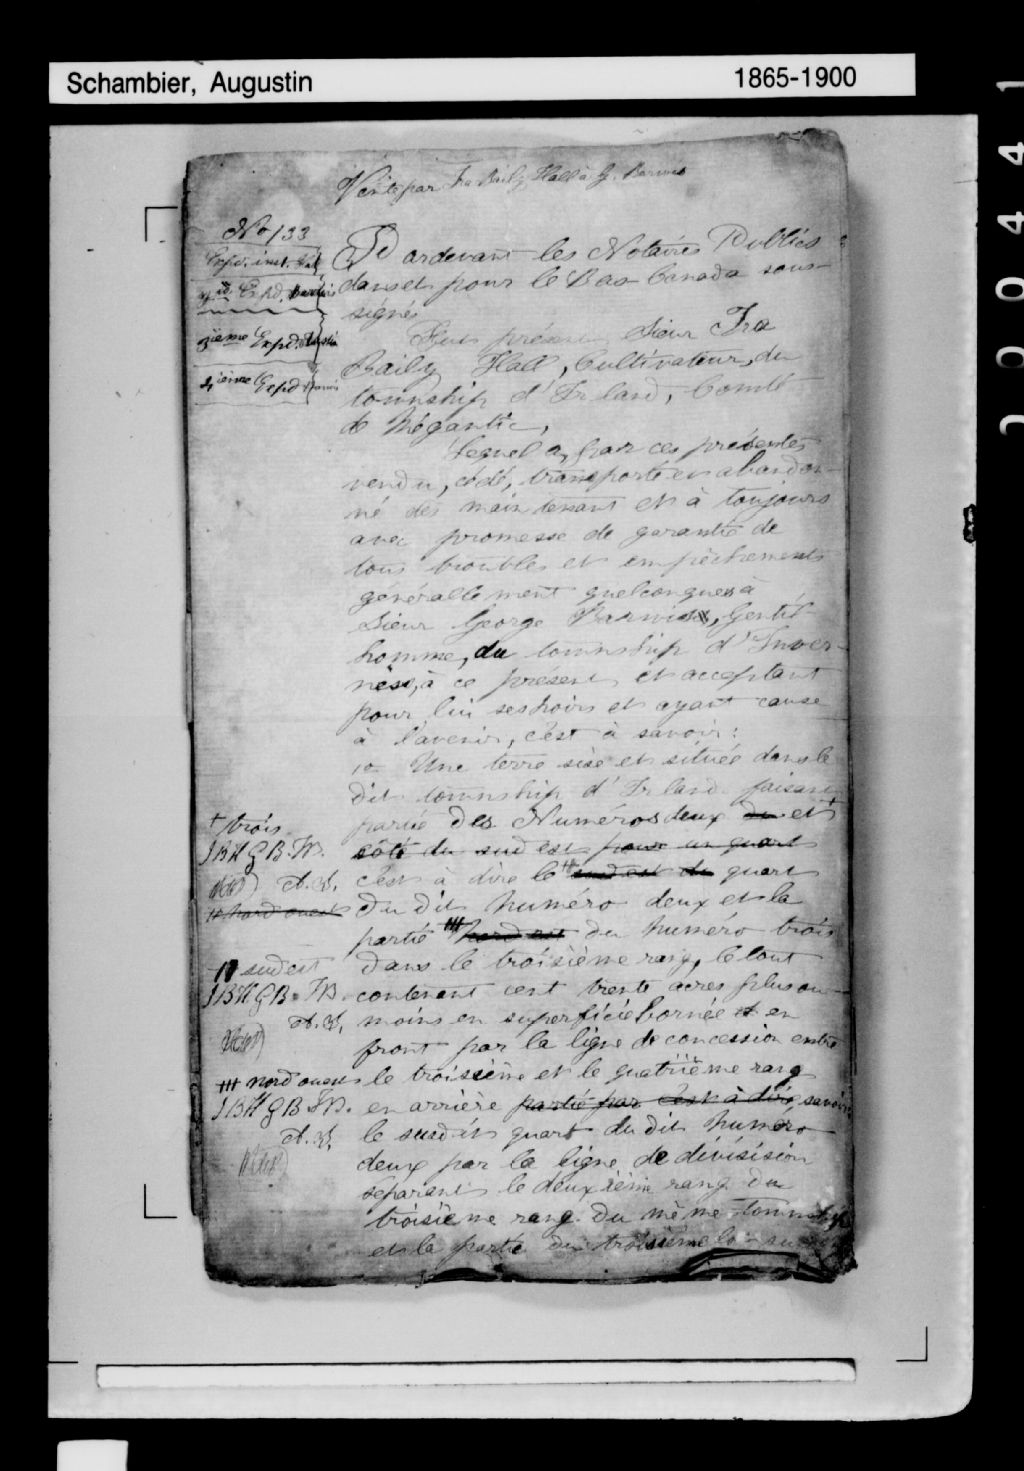 Schambier, Augustin 1865-1900
20044
Vente par Ira Baily Hall à G. Barwis
No 133
Expd. inst. Hall
2de Expd. Barwis
3ieme Expd.
4ieme Expd Barwis
Pardevant les Notaires Publics
dans et pour le Bas Canada sous-
signés
Fut présent Sieur Ira
Baily Hall, Cultivateur, du
township d'Irland, Comté
de Mégantic,
Lequel a, par ces présentes
vendu, cédé, transporté et abandon-
né dès maintenant et à toujours
avec promesse de garantie de
tous troubles et empêchements
générallement quelconques à
Sieur George Barwis, Gentil
homme, du township d'Inver-
nèss, à ce présent et acceptant
pour lui ses hoirs et ayant cause
à l'avenir, c'est à savoir:
1o Une terre sise et située dans le
dit township d'Irland faisant
partie des Numéros deux du et +
côté du sud est pour un quart
c'est à dire le # sud est du quart
du dit numéro deux et la
partie ### nord est du numéro trois
dans le troisième rang, le tout
contenant cent trente acres plus ou
moins en superficie bornée et en
front par la ligne de concession entre
le troisième et le quatrième rang
en arrière partie par c'est à dire, savoir
le susdit quart du dit numéro
deux par la ligne de dévisision
séparant le deuxième rang du
troisième rang du même township
et la partie du troisième lot
+ trois
I B H G B. F.B.
A.S.
# nord ouest
# sud est
I B H G B. F.B.
A.S.
### nord ouest
I B H G B F.B.
A.S.